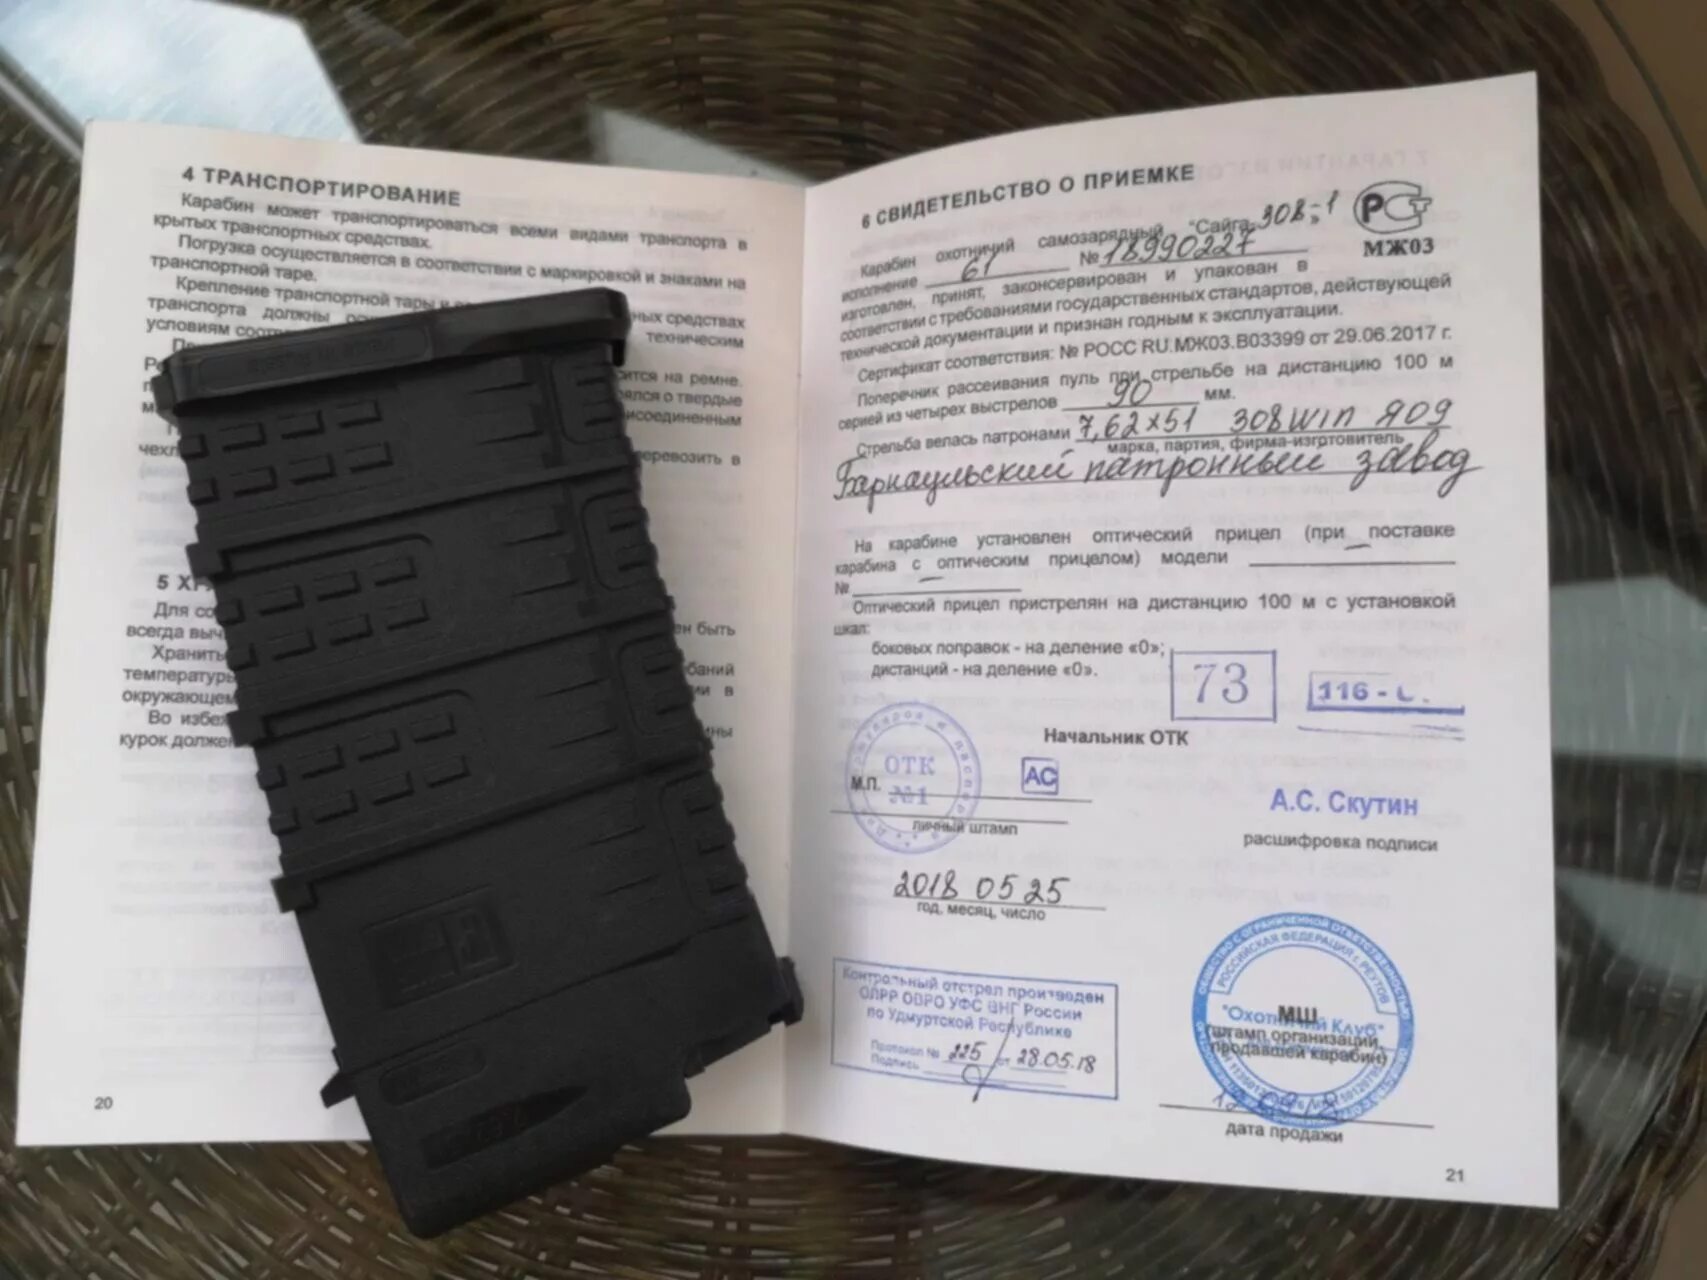 4 ТРАНСПОРТИРОВАНИЕ
Карабин может транспортироваться всеми видами транспорта в
крытых транспортных средствах.
Погрузка осуществляется в соответствии с маркировкой и знаками на
транспортной таре.
Крепление транспортной тары и
транспорта должны средствах
условиям техническим
на ремне.
о твердые
перевозить в
чехл
5 ХР
Для со быть
всегда выч
Хранить
температуры в
окружающем
Во избеж
курок должен
20
6 СВИДЕТЕЛЬСТВО О ПРИЕМКЕ
Карабин охотничий самозарядный "Сайга-308"-1
исполнение 61 № 18990227
изготовлен, принят, законсервирован и упакован в
соответствии с требованиями государственных стандартов, действующей
технической документации и признан годным к эксплуатации.
РСТ
МЖ03
Сертификат соответствия: № РОСС RU.МЖ03.В03399 от 29.06.2017 г.
Поперечник рассеивания пуль при стрельбе на дистанцию 100 м
серией из четырех выстрелов 90 мм.
Стрельба велась патронами 7,62x51 308Win Я09
марка, партия, фирма-изготовитель
Барнаульский патронный завод
На карабине установлен оптический прицел (при поставке
карабина с оптическим прицелом) модели
№
Оптический прицел пристрелян на дистанцию 100 м с установкой
шкал:
боковых поправок - на деление «0»;
дистанций - на деление «0».
73
116 -
Начальник ОТК
ОТК
№1
М.П.
АС
личный штамп
А.С. Скутин
расшифровка подписи
2018 05 25
год, месяц, число
Контрольный отстрел произведен
ОЛРР ОВРО УФС ВНГ России
по Удмуртской Республике
Протокол № 225 от 28.05.18
Подпись
ОБЩЕСТВО С ОГРАНИЧЕННОЙ ОТВЕТСТВЕННОСТЬЮ
РОССИЙСКАЯ ФЕДЕРАЦИЯ г. РЕУТОВ
"Охотничий Клуб"
МШ
(штамп организации,
продавшей карабин)
дата продажи
21